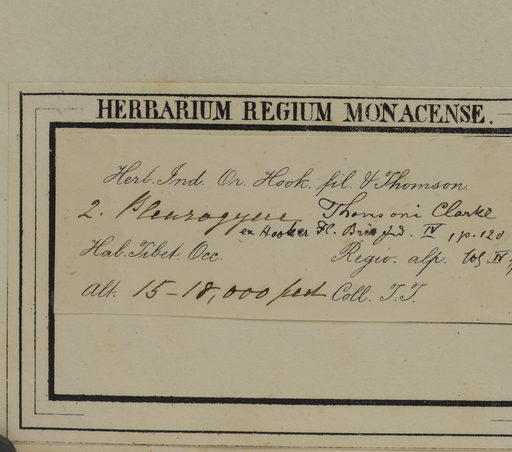 HERBARIUM REGIUM MONACENSE.
Herb. Ind. Or. Hook. fil. & Thomson.
2. Pleurogyne Thomsoni Clarke
ex Hooker Fl. Brit. Ind. IV, p. 120
Hab. Tibet. Occ. Regio. alp.
Alt. 15-18,000 feet Coll. T.T.